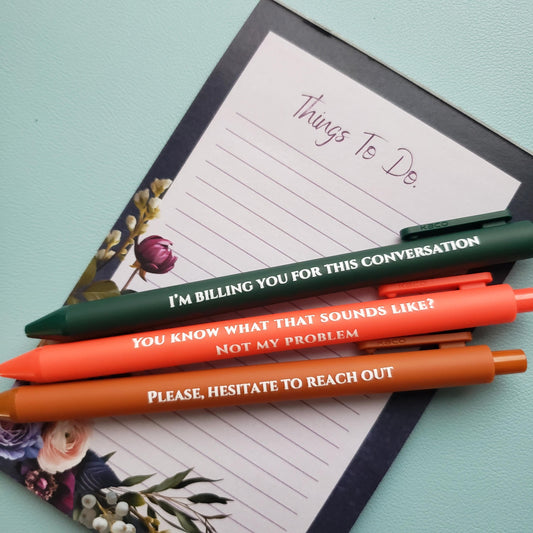 Things To Do.
KACO
I'M BILLING YOU FOR THIS CONVERSATION
KACO
YOU KNOW WHAT THAT SOUNDS LIKE?
NOT MY PROBLEM
KACO
PLEASE, HESITATE TO REACH OUT